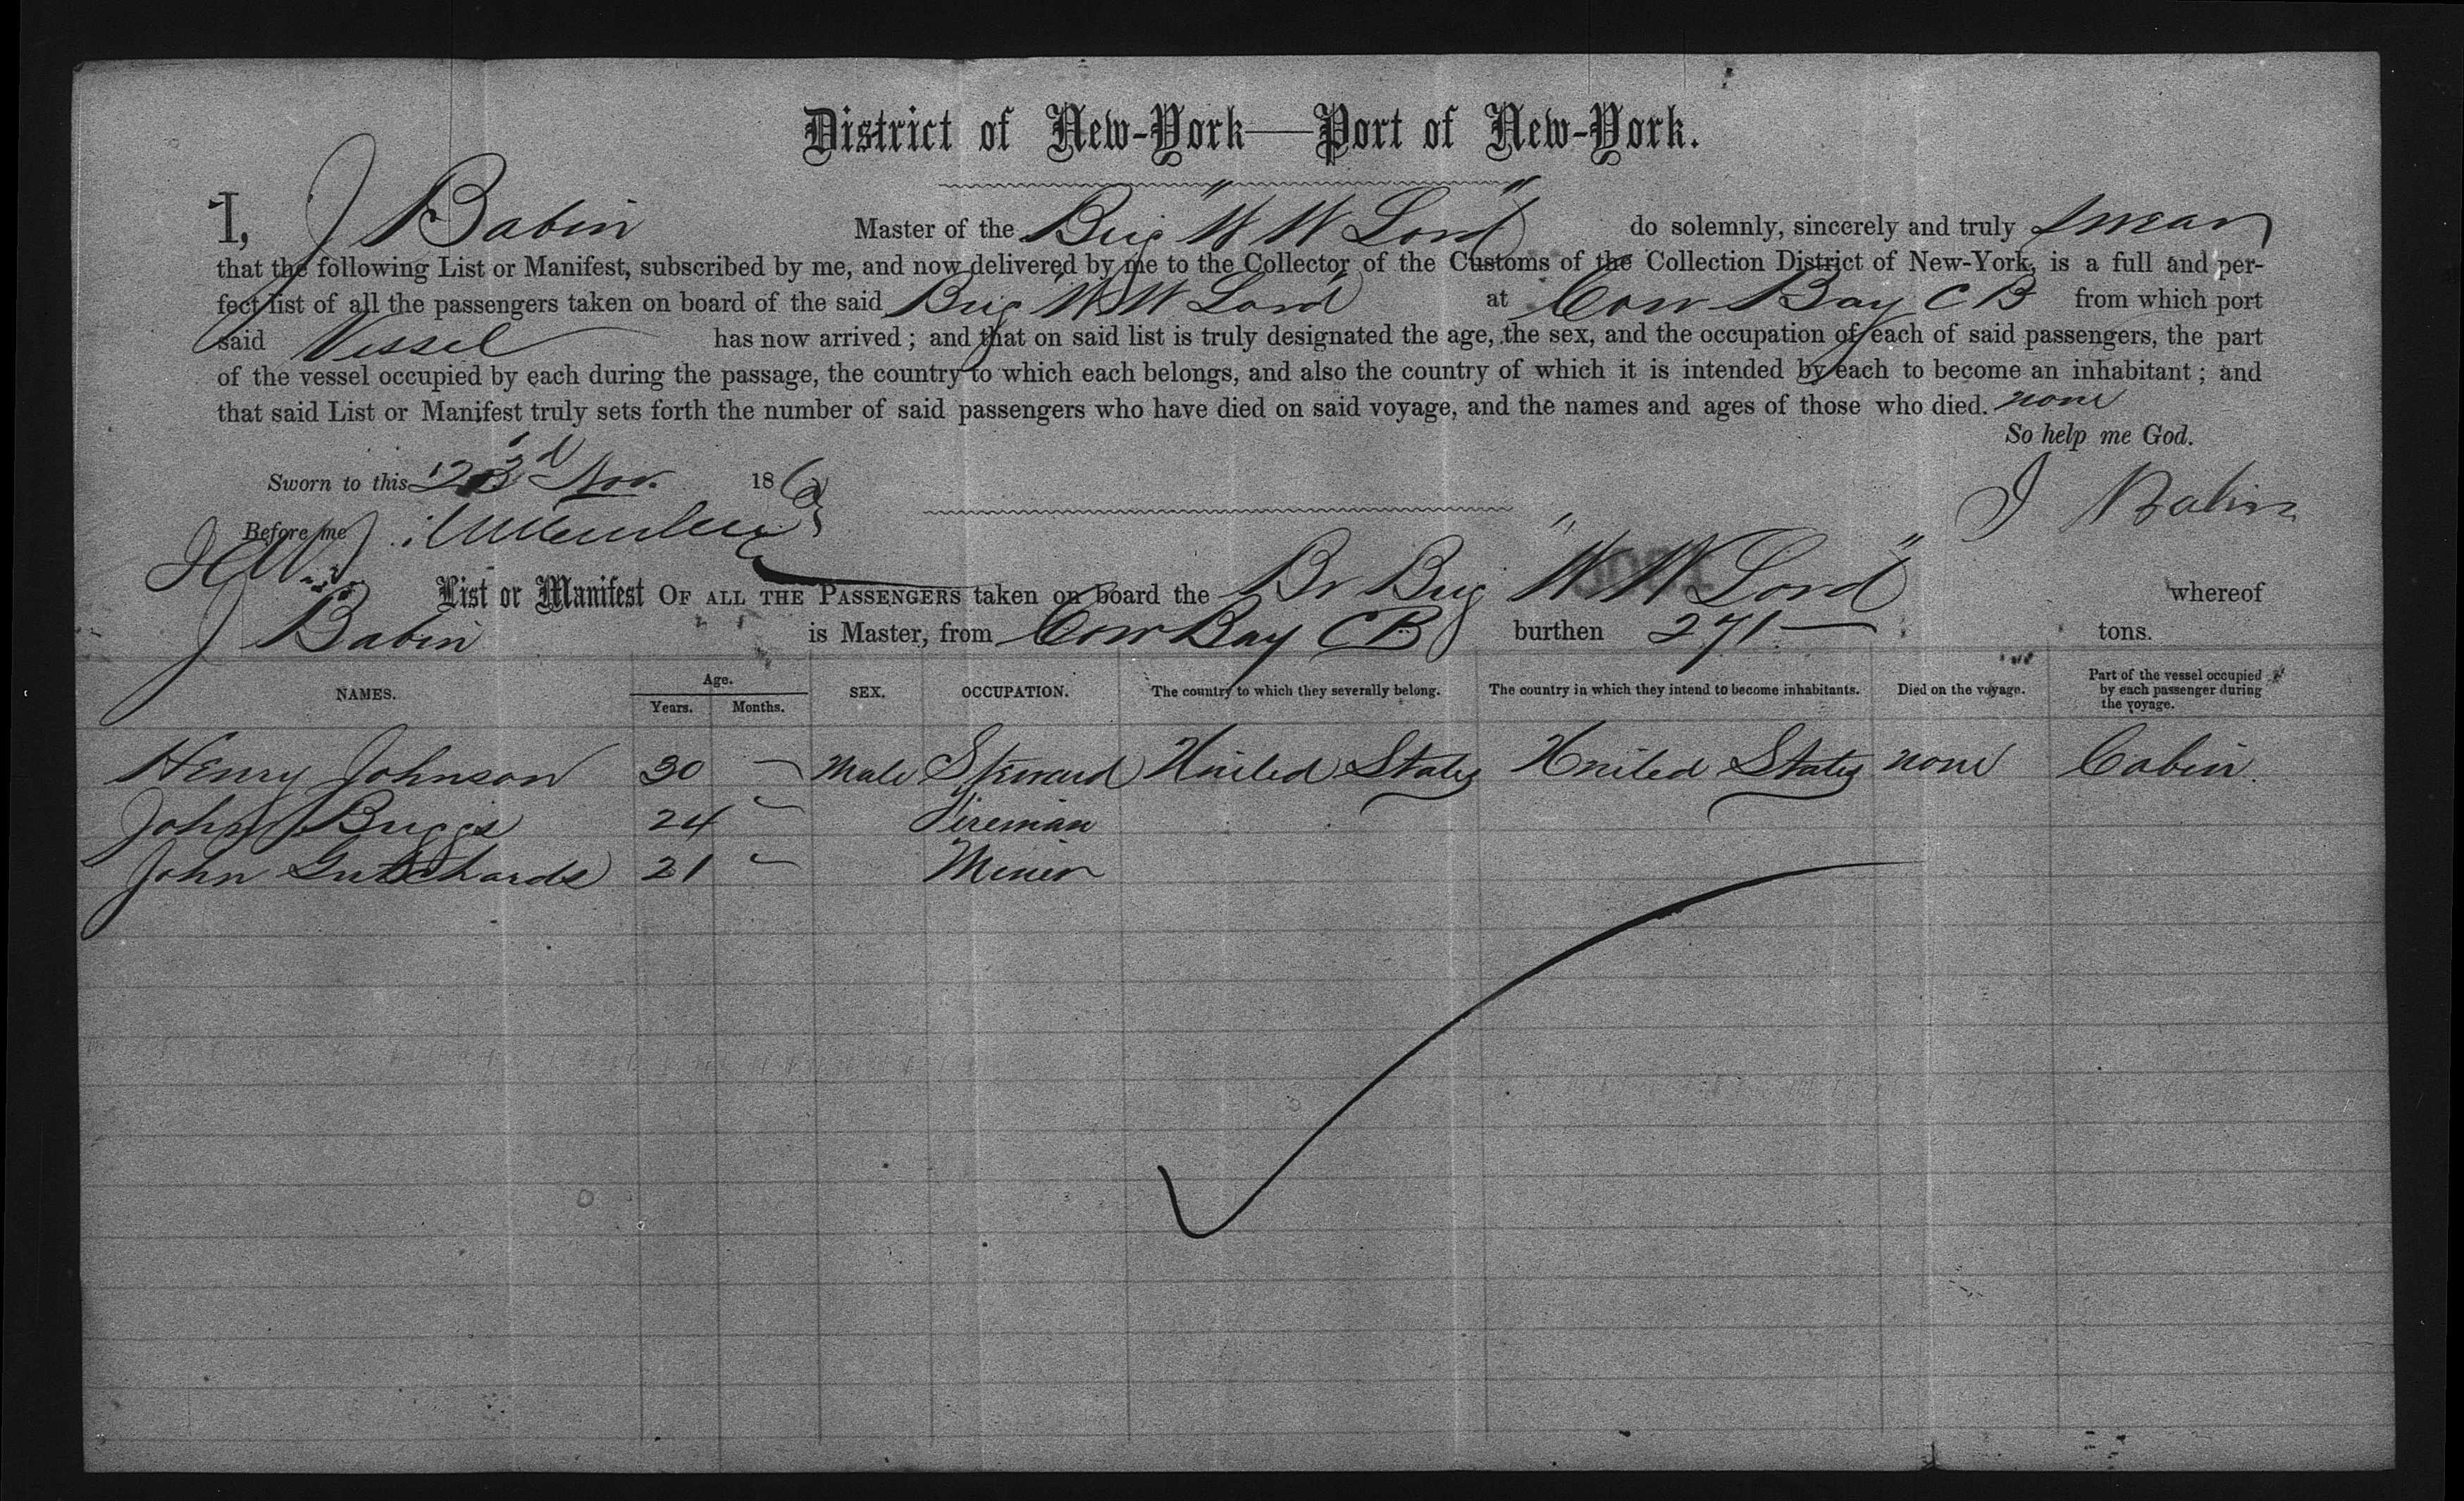 District of New-York—Port of New-York.
I, J Babin Master of the Brig "W W Lord" do solemnly, sincerely and truly swear
that the following List or Manifest, subscribed by me, and now delivered by me to the Collector of the Customs of the Collection District of New-York, is a full and per-
fect list of all the passengers taken on board of the said Brig W W Lord at Cow Bay C B from which port
said Vessel has now arrived ; and that on said list is truly designated the age, the sex, and the occupation of each of said passengers, the part
of the vessel occupied by each during the passage, the country to which each belongs, and also the country of which it is intended by each to become an inhabitant ; and
that said List or Manifest truly sets forth the number of said passengers who have died on said voyage, and the names and ages of those who died. none
So help me God.
Sworn to this 23d Nov. 186
Before me J Babin
List or Manifest OF ALL THE PASSENGERS taken on board the Br Brig "W W Lord" whereof
J Babin is Master, from Cow Bay CB burthen 271 — tons.
NAMES. Age. Years. Months. SEX. OCCUPATION. The country to which they severally belong. The country in which they intend to become inhabitants. Died on the voyage. Part of the vessel occupied by each passenger during the voyage.
Henry Johnson 30 — Male Steward United States United States none Cabin.
John Briggs 24 — Fireman
John Gutchards 21 — Miner